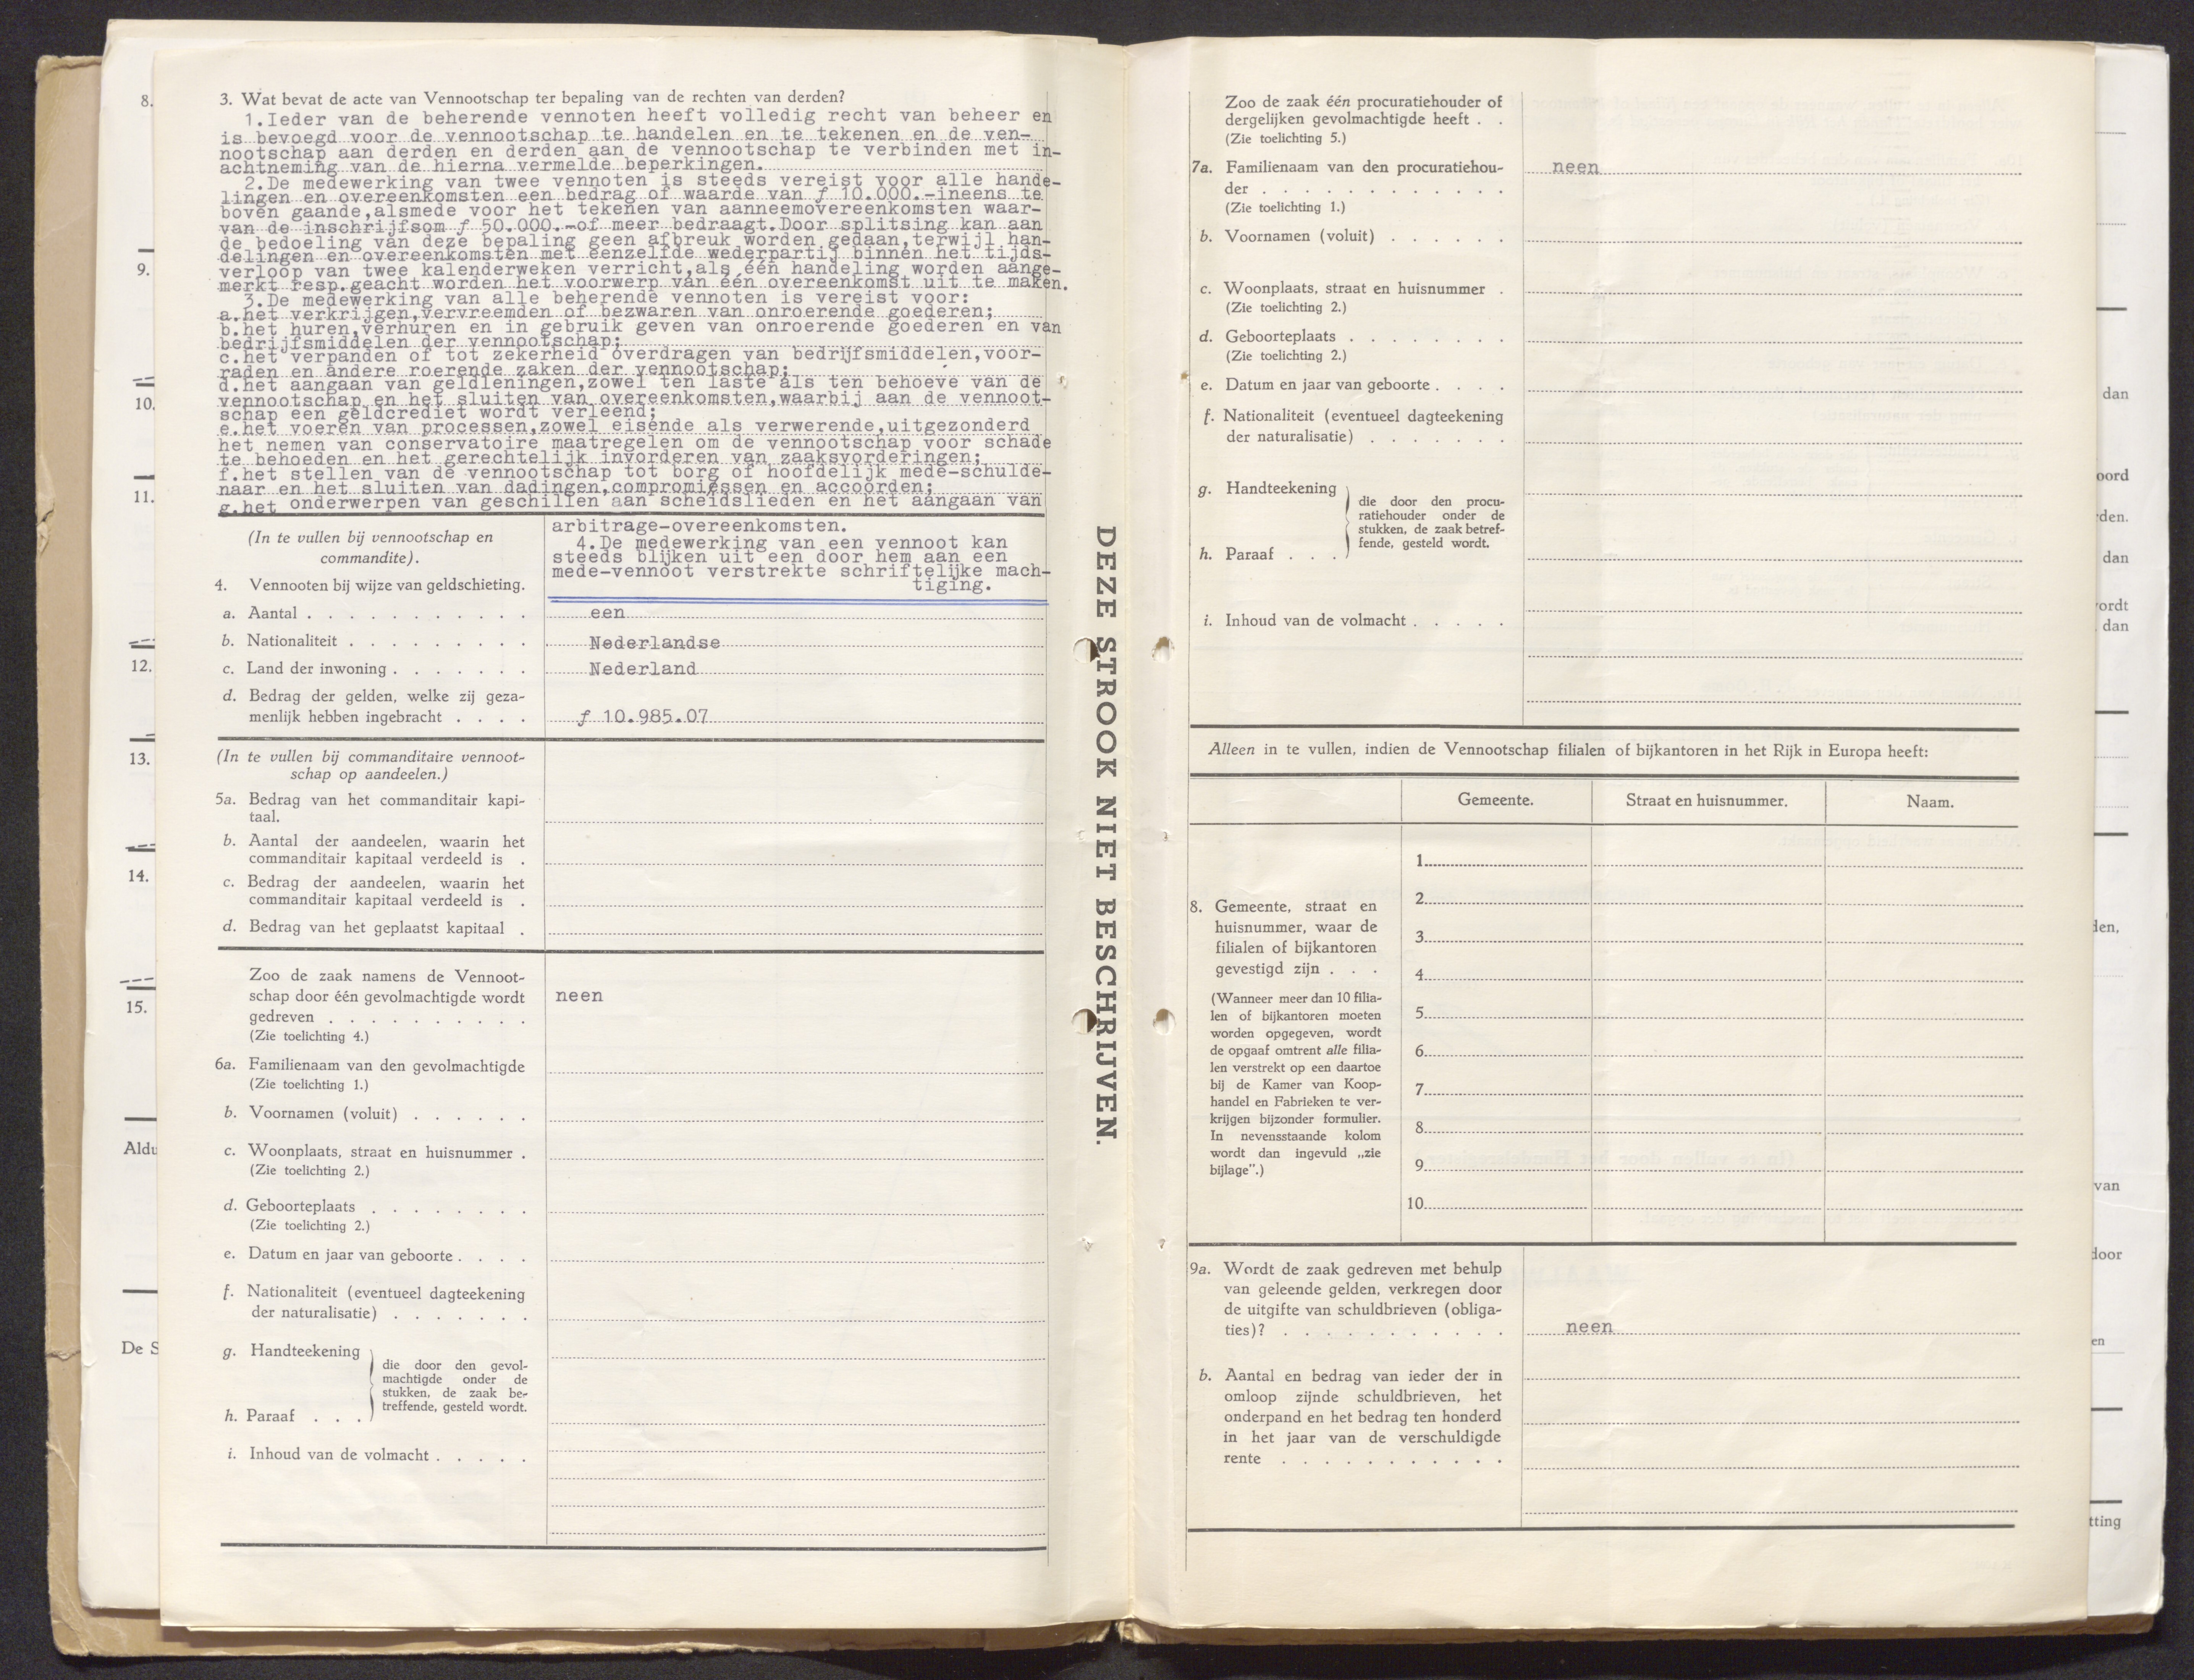 3. Wat bevat de acte van Vennootschap ter bepaling van de rechten van derden?
1.Ieder van de beherende vennoten heeft volledig recht van beheer en
is bevoegd voor de vennootschap te handelen en te tekenen en de ven-
nootschap aan derden en derden aan de vennootschap te verbinden met in-
achtneming van de hierna vermelde beperkingen.
2.De medewerking van twee vennoten is steeds vereist voor alle hande-
lingen en overeenkomsten een bedrag of waarde van ƒ 10.000.-ineens te
boven gaande,alsmede voor het tekenen van aanneemovereenkomsten waar-
van de inschrijfsom ƒ 50.000.-of meer bedraagt.Door splitsing kan aan
de bedoeling van deze bepaling geen afbreuk worden gedaan,terwijl han-
delingen en overeenkomsten met eenzelfde wederpartij binnen het tijds-
verloop van twee kalenderweken verricht,als één handeling worden aange-
merkt resp.geacht worden het voorwerp van één overeenkomst uit te maken.
3.De medewerking van alle beherende vennoten is vereist voor:
a.het verkrijgen,vervreemden of bezwaren van onroerende goederen;
b.het huren,verhuren en in gebruik geven van onroerende goederen en van
bedrijfsmiddelen der vennootschap;
c.het verpanden of tot zekerheid overdragen van bedrijfsmiddelen,voor-
raden en andere roerende zaken der vennootschap;
d.het aangaan van geldleningen,zowel ten laste als ten behoeve van de
vennootschap en het sluiten van overeenkomsten,waarbij aan de vennoot-
schap een geldcrediet wordt verleend;
e.het voeren van processen,zowel eisende als verwerende,uitgezonderd
het nemen van conservatoire maatregelen om de vennootschap voor schade
te behoeden en het gerechtelijk invorderen van zaaksvorderingen;
f.het stellen van de vennootschap tot borg of hoofdelijk mede-schulde-
naar en het sluiten van dadingen,compromissen en accoorden;
g.het onderwerpen van geschillen aan scheidslieden en het aangaan van
arbitrage-overeenkomsten.
4.De medewerking van een vennoot kan
steeds blijken uit een door hem aan een
mede-vennoot verstrekte schriftelijke mach-
tiging.
(In te vullen bij vennootschap en
commandite).
4. Vennooten bij wijze van geldschieting.
a. Aantal . . . . een
b. Nationaliteit . . . . Nederlandse
c. Land der inwoning . . . . Nederland
d. Bedrag der gelden, welke zij geza-
menlijk hebben ingebracht . . . . ƒ 10.985.07
(In te vullen bij commanditaire vennoot-
schap op aandeelen.)
5a. Bedrag van het commanditair kapi-
taal.
b. Aantal der aandeelen, waarin het
commanditair kapitaal verdeeld is .
c. Bedrag der aandeelen, waarin het
commanditair kapitaal verdeeld is .
d. Bedrag van het geplaatst kapitaal .
Zoo de zaak namens de Vennoot-
schap door één gevolmachtigde wordt neen
gedreven . . . .
(Zie toelichting 4.)
6a. Familienaam van den gevolmachtigde
(Zie toelichting 1.)
b. Voornamen (voluit) . . . .
c. Woonplaats, straat en huisnummer .
(Zie toelichting 2.)
d. Geboorteplaats . . . .
(Zie toelichting 2.)
e. Datum en jaar van geboorte . . . .
f. Nationaliteit (eventueel dagteekening
der naturalisatie) . . . .
g. Handteekening
die door den gevol-
machtigde onder de
stukken, de zaak be-
treffende, gesteld wordt.
h. Paraaf . . .
i. Inhoud van de volmacht . . . .
DEZE STROOK NIET BESCHRIJVEN.
Zoo de zaak één procuratiehouder of
dergelijken gevolmachtigde heeft . .
(Zie toelichting 5.)
7a. Familienaam van den procuratiehou- neen
der . . . .
(Zie toelichting 1.)
b. Voornamen (voluit) . . . .
c. Woonplaats, straat en huisnummer .
(Zie toelichting 2.)
d. Geboorteplaats . . . .
(Zie toelichting 2.)
e. Datum en jaar van geboorte . . . .
f. Nationaliteit (eventueel dagteekening
der naturalisatie) . . . .
g. Handteekening
die door den procu-
ratiehouder onder de
stukken, de zaak betref-
fende, gesteld wordt.
h. Paraaf . . .
i. Inhoud van de volmacht . . . .
Alleen in te vullen, indien de Vennootschap filialen of bijkantoren in het Rijk in Europa heeft:
Gemeente. Straat en huisnummer. Naam.
8. Gemeente, straat en
huisnummer, waar de
filialen of bijkantoren
gevestigd zijn . . .
(Wanneer meer dan 10 filia-
len of bijkantoren moeten
worden opgegeven, wordt
de opgaaf omtrent alle filia-
len verstrekt op een daartoe
bij de Kamer van Koop-
handel en Fabrieken te ver-
krijgen bijzonder formulier.
In nevensstaande kolom
wordt dan ingevuld „zie
bijlage”.)
1
2
3
4
5
6
7
8
9
10
9a. Wordt de zaak gedreven met behulp
van geleende gelden, verkregen door
de uitgifte van schuldbrieven (obliga-
ties)? . . . . neen
b. Aantal en bedrag van ieder der in
omloop zijnde schuldbrieven, het
onderpand en het bedrag ten honderd
in het jaar van de verschuldigde
rente . . . .
8.
9.
10.
11.
12.
13.
14.
15.
Aldu
De S
dan
oord
den.
dan
ordt
dan
den,
van
door
en
tting